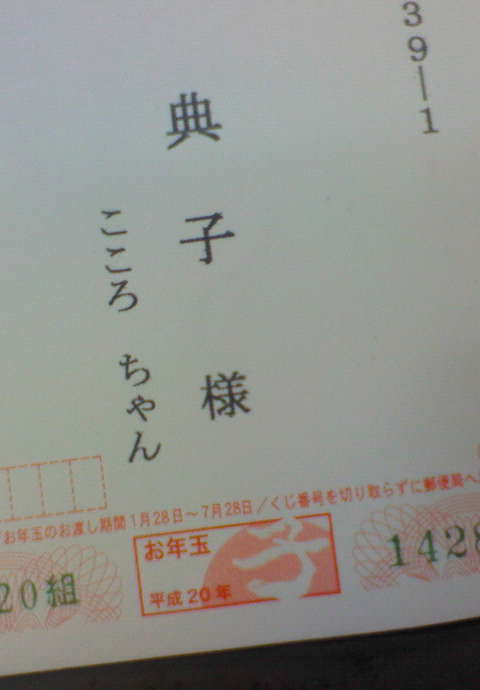 39—1
典子 様
こころ ちゃん
お年玉のお渡し期間1月28日〜7月28日/くじ番号を切り取らずに郵便局へ
お年玉
平成20年
20組
1428